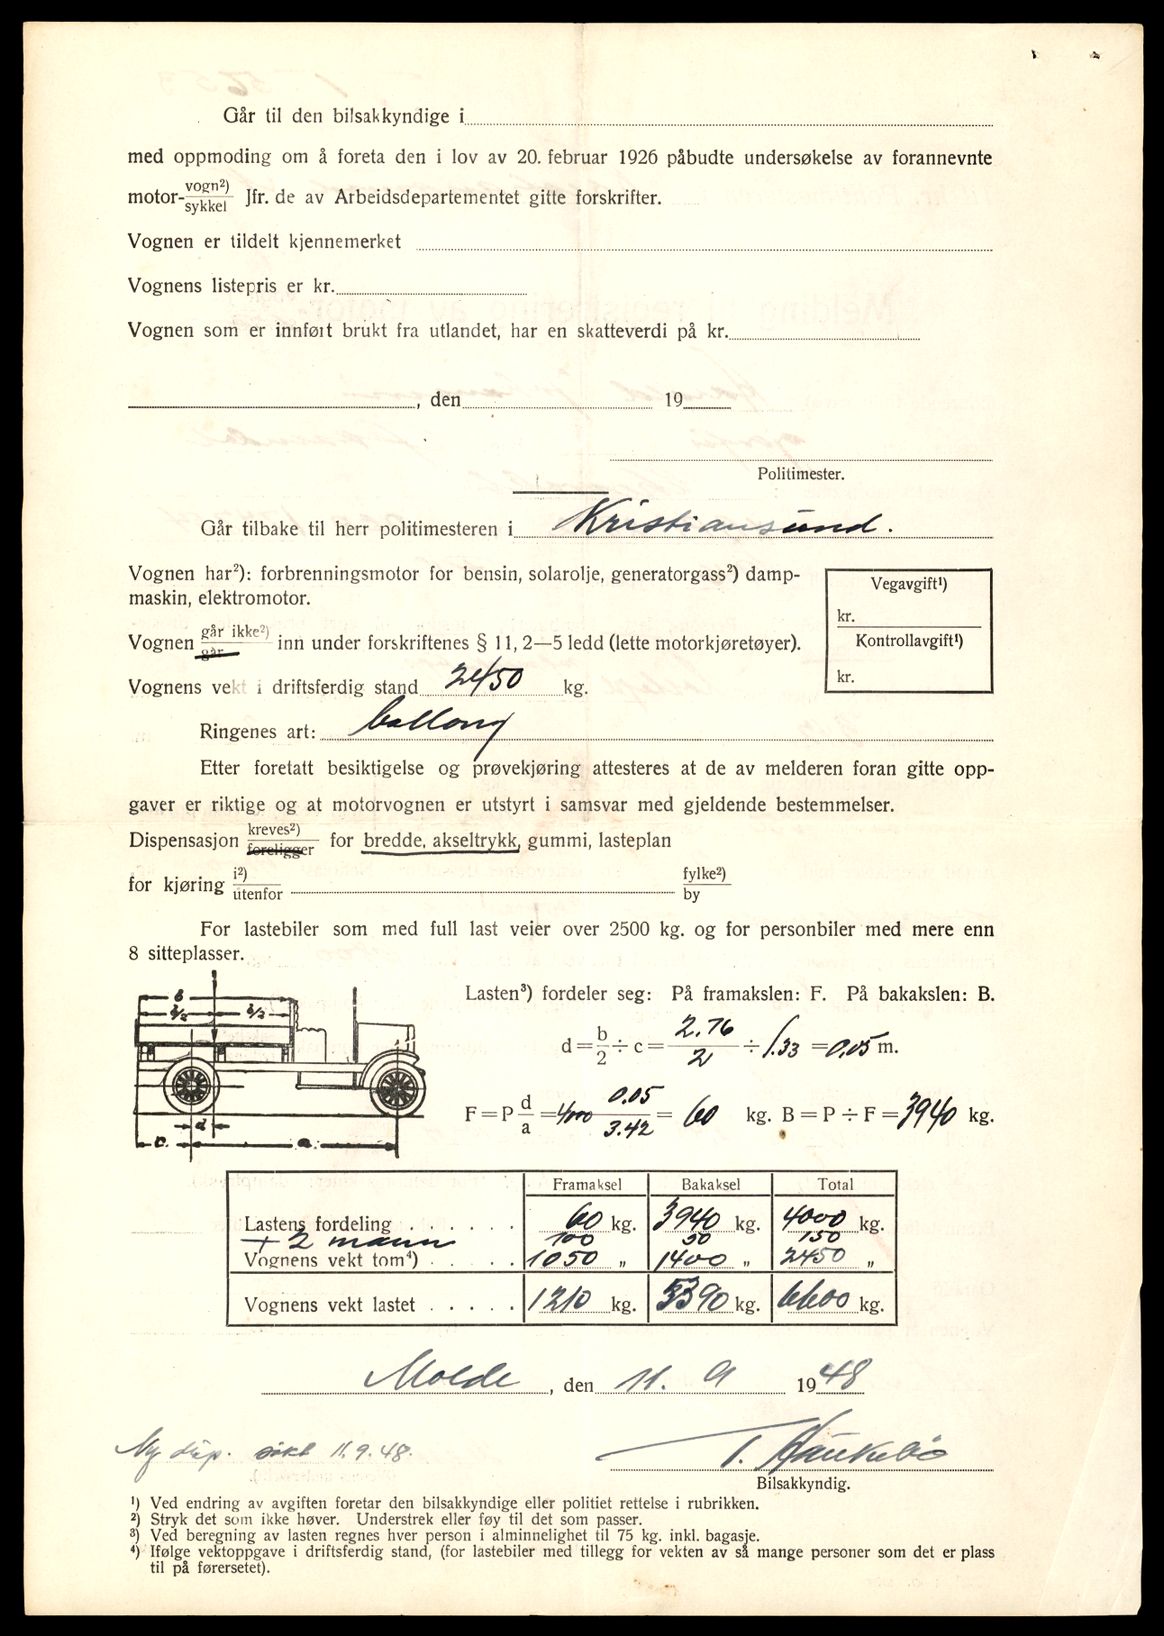 Går til den bilsakkyndige i
med oppmoding om å foreta den i lov av 20. februar 1926 påbudte undersøkelse av forannevnte
motor-vogn²)/sykkel Jfr. de av Arbeidsdepartementet gitte forskrifter.
Vognen er tildelt kjennemerket
Vognens listepris er kr.
Vognen som er innført brukt fra utlandet, har en skatteverdi på kr.
, den 19
Politimester.
Går tilbake til herr politimesteren i Kristiansund.
Vognen har²): forbrenningsmotor for bensin, solarolje, generatorgass²) damp-
maskin, elektromotor.
Vegavgift¹)
kr.
Kontrollavgift¹)
kr.
Vognen går ikke²)/går inn under forskriftenes § 11, 2—5 ledd (lette motorkjøretøyer).
Vognens vekt i driftsferdig stand 2450 kg.
Ringenes art: ballong
Etter foretatt besiktigelse og prøvekjøring attesteres at de av melderen foran gitte opp-
gaver er riktige og at motorvognen er utstyrt i samsvar med gjeldende bestemmelser.
Dispensasjon kreves²)/foreligger for bredde, akseltrykk, gummi, lasteplan
for kjøring i²)/utenfor fylke²)/by
For lastebiler som med full last veier over 2500 kg. og for personbiler med mere enn
8 sitteplasser.
b
b/2 b/2
d
c. a.
Lasten³) fordeler seg: På framakslen: F. På bakakslen: B.
d = b/2 ÷ c = 2.76/2 ÷ 1.33 = 0.05 m.
F = P d/a = 4000 0.05/3.42 = 60 kg. B = P ÷ F = 3940 kg.
Framaksel Bakaksel Total
Lastens fordeling . . . . . . 60 kg. 3940 kg. 4000 kg.
+ 2 mann 100 50 150
Vognens vekt tom⁴) . . . . . 1050 „ 1400 „ 2450 „
Vognens vekt lastet . . . . . 1210 kg. 5390 kg. 6600 kg.
Molde, den 11. 9 1948
Ny dup. søkt 11.9.48.
T. Haukebø
Bilsakkyndig.
¹) Ved endring av avgiften foretar den bilsakkyndige eller politiet rettelse i rubrikken.
²) Stryk det som ikke høver. Understrek eller føy til det som passer.
³) Ved beregning av lasten regnes hver person i alminnelighet til 75 kg. inkl. bagasje.
⁴) Ifølge vektoppgave i driftsferdig stand, (for lastebiler med tillegg for vekten av så mange personer som det er plass
til på førersetet).